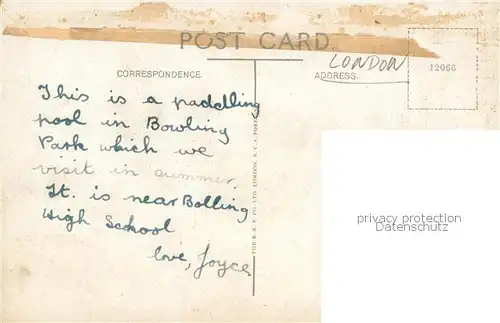 POST CARD.
LONDON
CORRESPONDENCE.
ADDRESS.
12066
This is a paddling
pool in Bowling
Park which we
visit in summer.
It. is near Bolling
High School
love, Joyce
privacy protection
Datenschutz